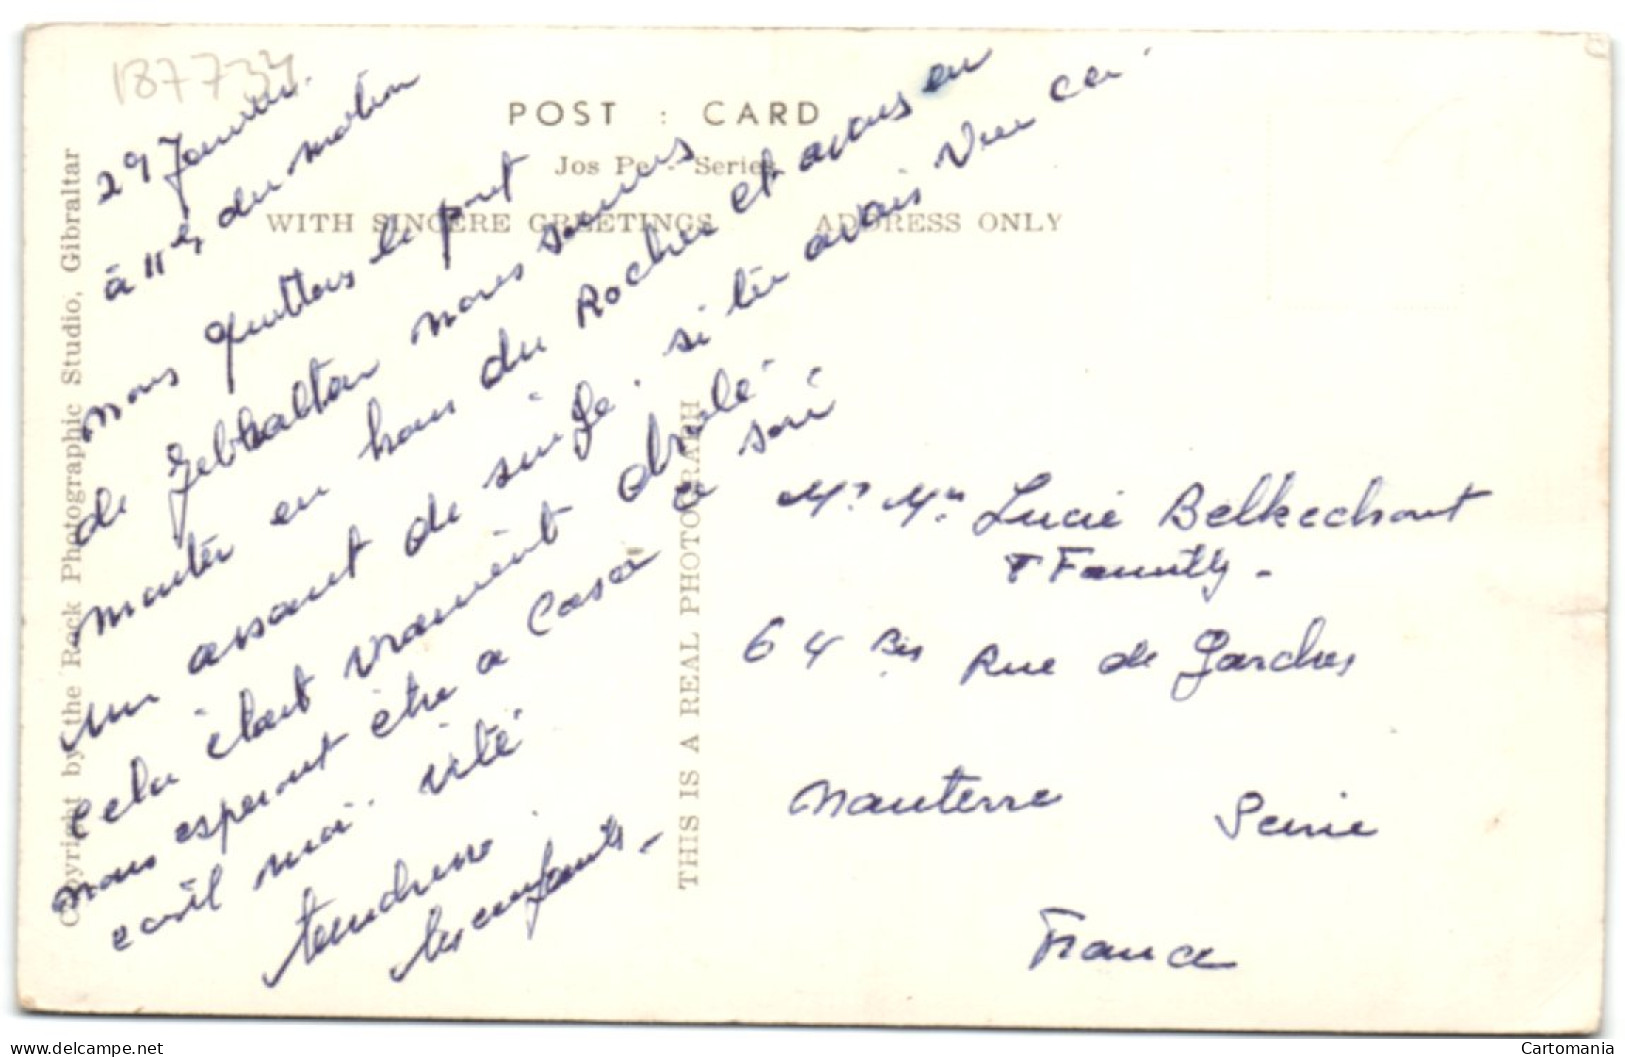 187734
POST : CARD
Jos Pe - Series
WITH SINCERE GREETINGS
ADDRESS ONLY
Copyright by the Rock Photographic Studio, Gibraltar
THIS IS A REAL PHOTOGRAPH
29 Janvier.
à 11h du matin
nous quittons le port
de Gebraltar nous sommes
monter en haut du Rocher et avons eu
un assaut de singe. si tu avais vue ca
cela était vraiment drolé
nous esperont être a Casa ce soir
ecrit moi vité
tendresse
les enfants -
Mr Mme Lucie Belkechout
& Familly -
64 Bis Rue de Garches
Nanterre Seine
France
delcampe.net
Cartomania